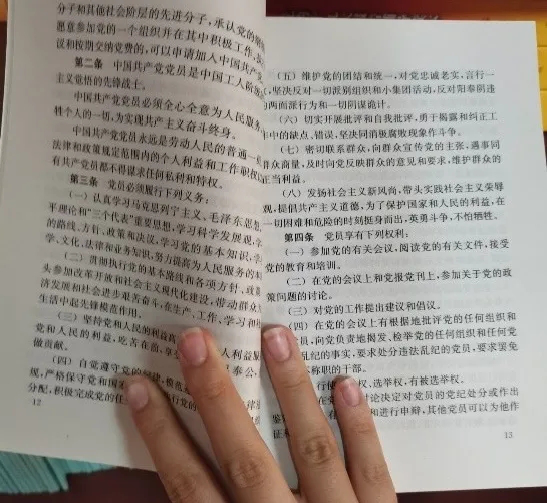 分子和其他社会阶层的先进分子，承认党的
愿意参加党的一个组织并在其中积极工作、
议和按期交纳党费的，可以申请加入中国共产党
第二条 中国共产党党员是中国工人阶级
主义觉悟的先锋战士。
中国共产党党员必须全心全意为人民服务，
牲个人的一切，为实现共产主义奋斗终身。
中国共产党党员永远是劳动人民的普通一
法律和政策规定范围内的个人利益和工作职权
有共产党员都不得谋求任何私利和特权。
第三条 党员必须履行下列义务：
（一）认真学习马克思列宁主义、毛泽东思想、
平理论和“三个代表”重要思想，学习科学发展观，学
的路线、方针、政策和决议，学习党的基本知识，学
学、文化、法律和业务知识，努力提高为人民服务的本
（二）贯彻执行党的基本路线和各项方针、政策
头参加改革开放和社会主义现代化建设，带动群众
济发展和社会进步艰苦奋斗，在生产、工作、学习和社
生活中起先锋模范作用。
（三）坚持党和人民的利益高 人利益服
党和人民的利益，吃苦在前，享 奉公，
做贡献。
（四）自觉遵守党的纪律，模范
规，严格保守党和国 律
分配，积极完成党的任
12
（五）维护党的团结和统一，对党忠诚老实，言行一
，坚决反对一切派别组织和小集团活动，反对阳奉阴违
的两面派行为和一切阴谋诡计。
（六）切实开展批评和自我批评，勇于揭露和纠正工
作中的缺点、错误，坚决同消极腐败现象作斗争。
（七）密切联系群众，向群众宣传党的主张，遇事同
群众商量，及时向党反映群众的意见和要求，维护群众的
正当利益。
（八）发扬社会主义新风尚，带头实践社会主义荣辱
观，提倡共产主义道德，为了保护国家和人民的利益，在
一切困难和危险的时刻挺身而出，英勇斗争，不怕牺牲。
第四条 党员享有下列权利：
（一）参加党的有关会议，阅读党的有关文件，接受
党的教育和培训。
（二）在党的会议上和党报党刊上，参加关于党的政
策问题的讨论。
（三）对党的工作提出建议和倡议。
（四）在党的会议上有根据地批评党的任何组织和
党员，向党负责地揭发、检举党的任何组织和任何党
乱纪的事实，要求处分违法乱纪的党员，要求罢免
称职的干部。
行使 权、选举权，有被选举权。
在党 讨论决定对党员的党纪处分或作出
鉴 和进行申辩，其他党员可以为他作
证
13